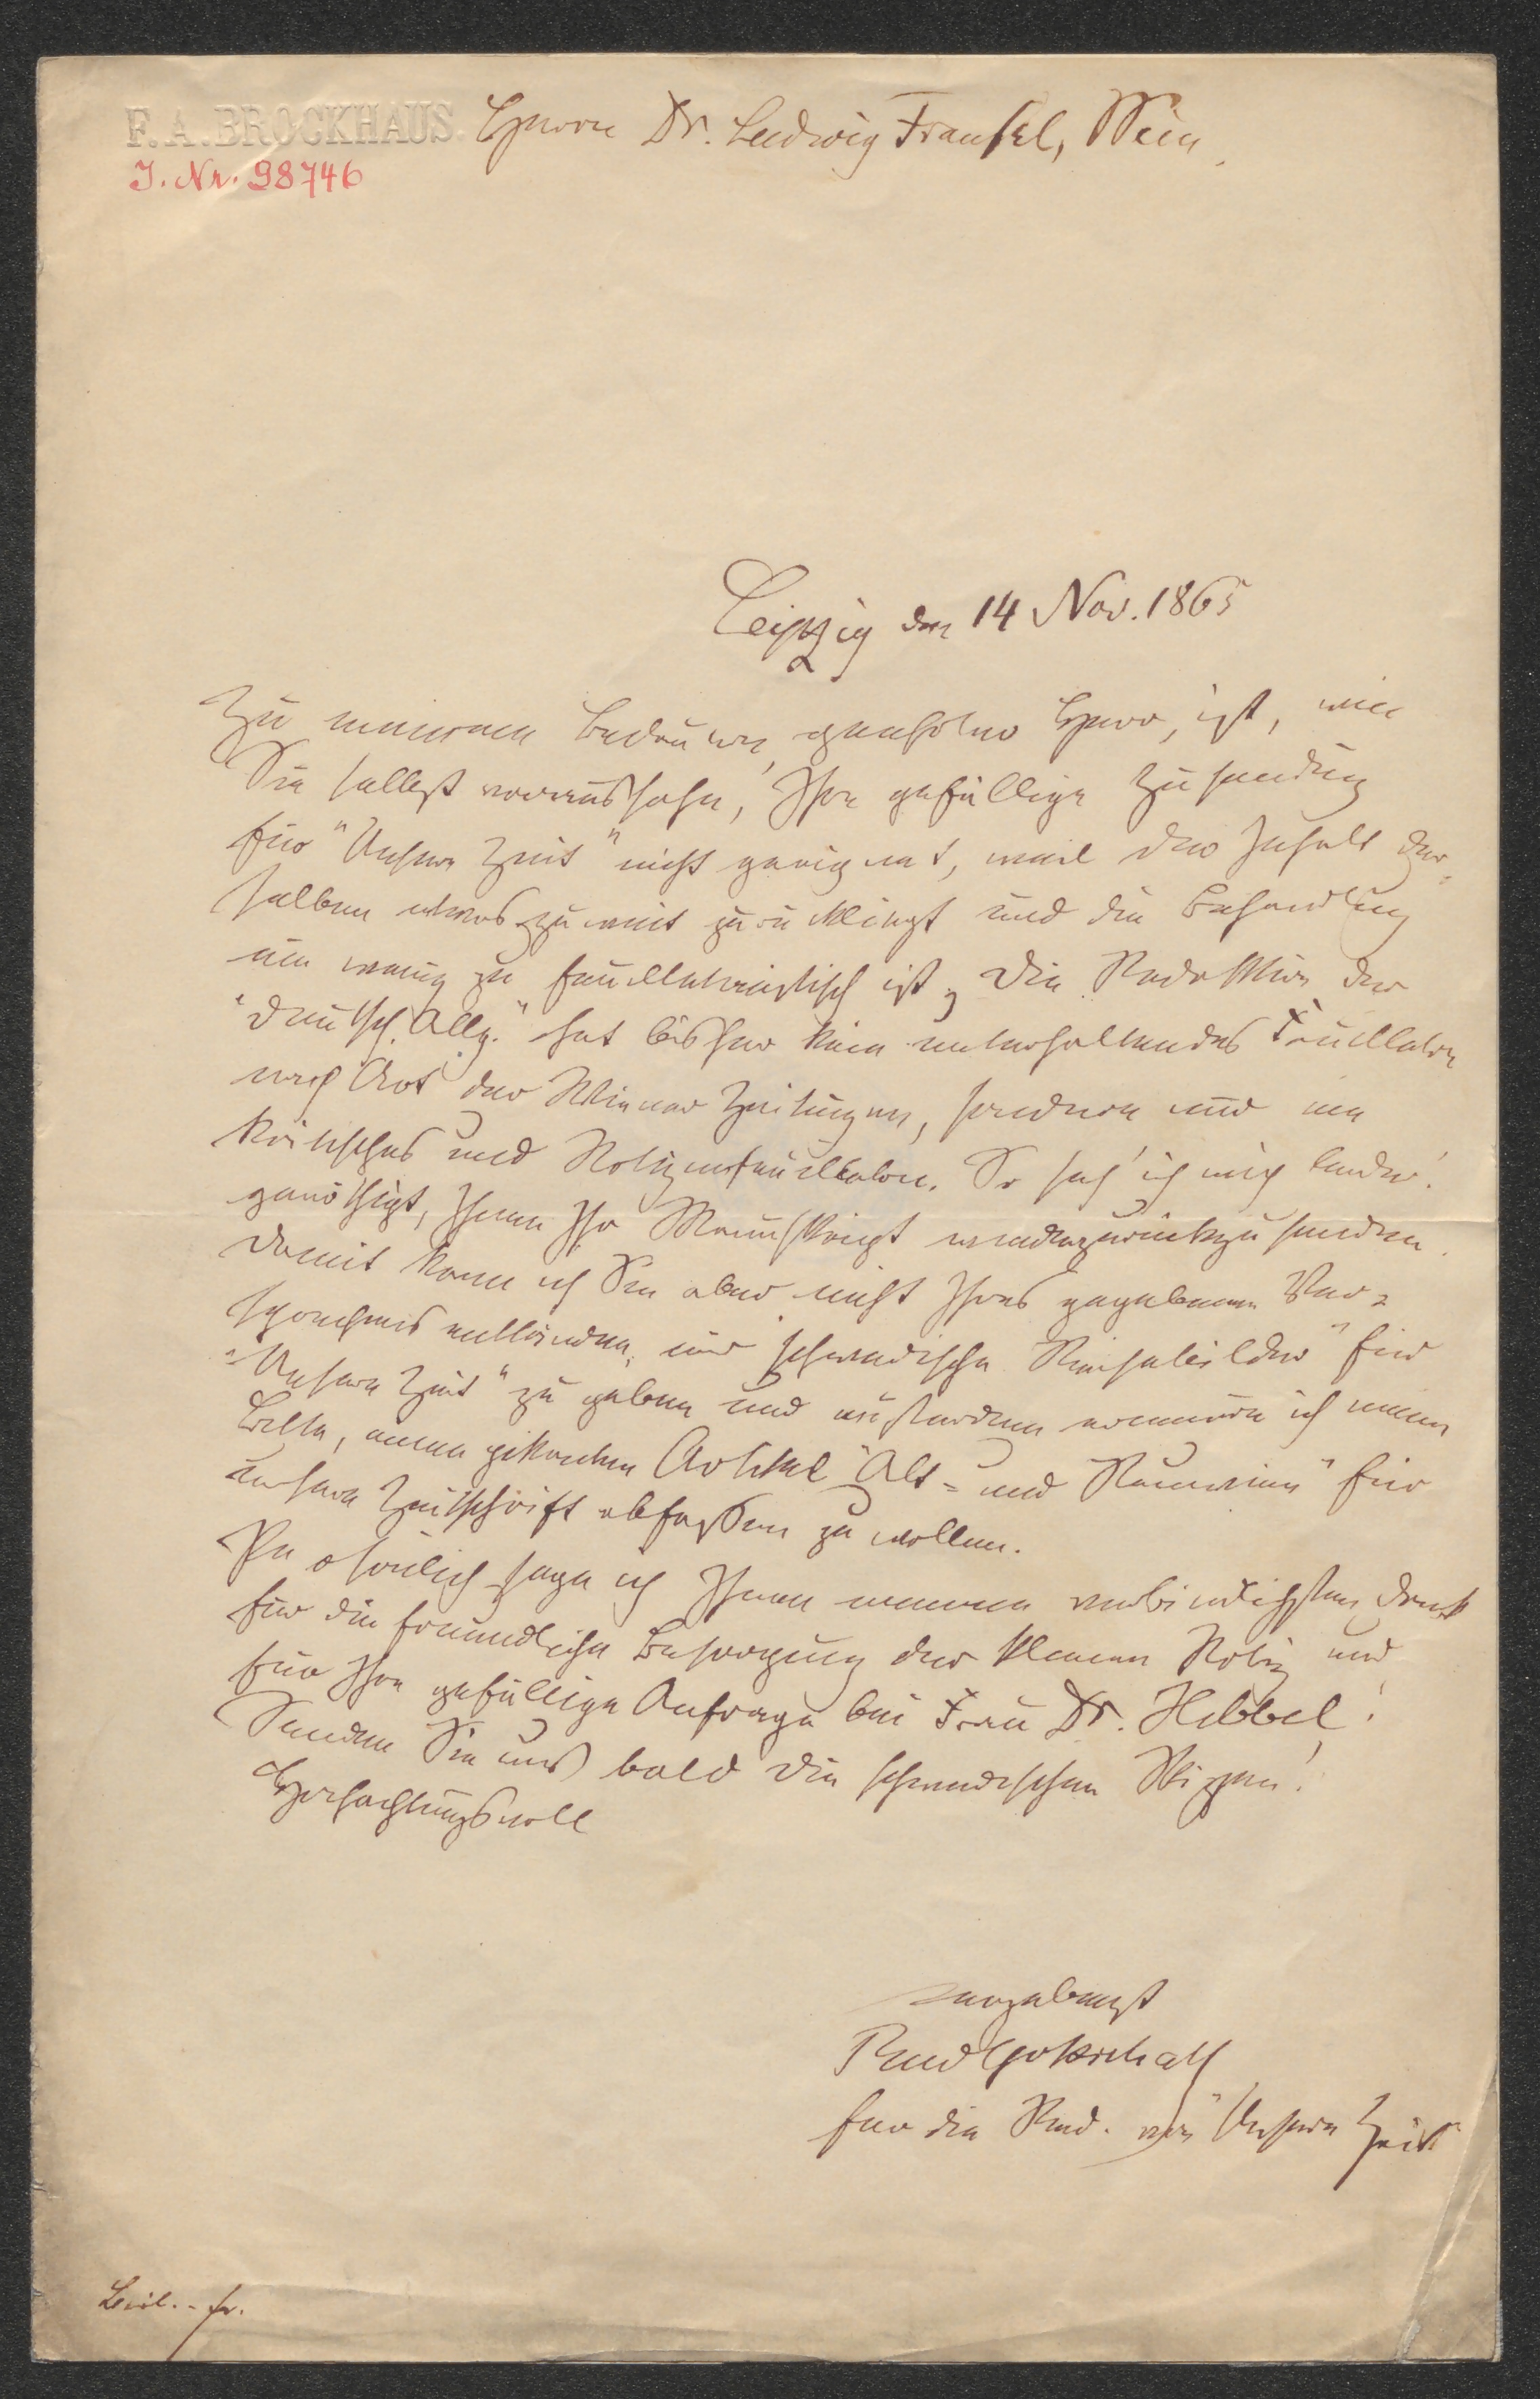 F. A. BROCKHAUS. Herrn Dr. Ludwig Frankl, Wien
J. Nr. 98746
Leipzig den 14 Nov. 1865
Zu meinem Bedauern, geehrter Herr, ist, wie
Sie selbst voraussahen, Ihre gefällige Zusendung
für "Unsere Zeit" nicht geeignet, weil der Inhalt der-
selben etwas zu weit zurückliegt und die Behandlung
ein wenig zu feuilletonistisch ist; die Redaktion der
"Deutsch. Allg." hat bisher kein unterhaltendes Feuilleton
nach Art der Wiener Zeitungen, sondern nur ein
kritisches und Notizenfeuilleton. So seh' ich mich leider
genöthigt, Ihnen Ihr Manuskript wiederzurückzusenden.
Damit kann ich Sie aber nicht Ihres gegebenen Ver-
sprechens entbinden, mir "schwedische Reisebilder" für
"Unsere Zeit" zu geben und außerdem erneuere ich meine
Bitte, einen pikanten Artikel "Alt- und Neuwien" für
unsere Zeitschrift abfassen zu wollen.
Persönlich sage ich Ihnen meinen verbindlichsten Dank
für die freundliche Besorgung der kleinen Notiz und
für Ihre gefällige Anfrage bei Frau Dr. Hebbel!
Senden Sie uns bald die schwedischen Skizzen!
Hochachtungsvoll
ergebenst
Rud Gottschall
für die Red. von "Unsere Zeit"